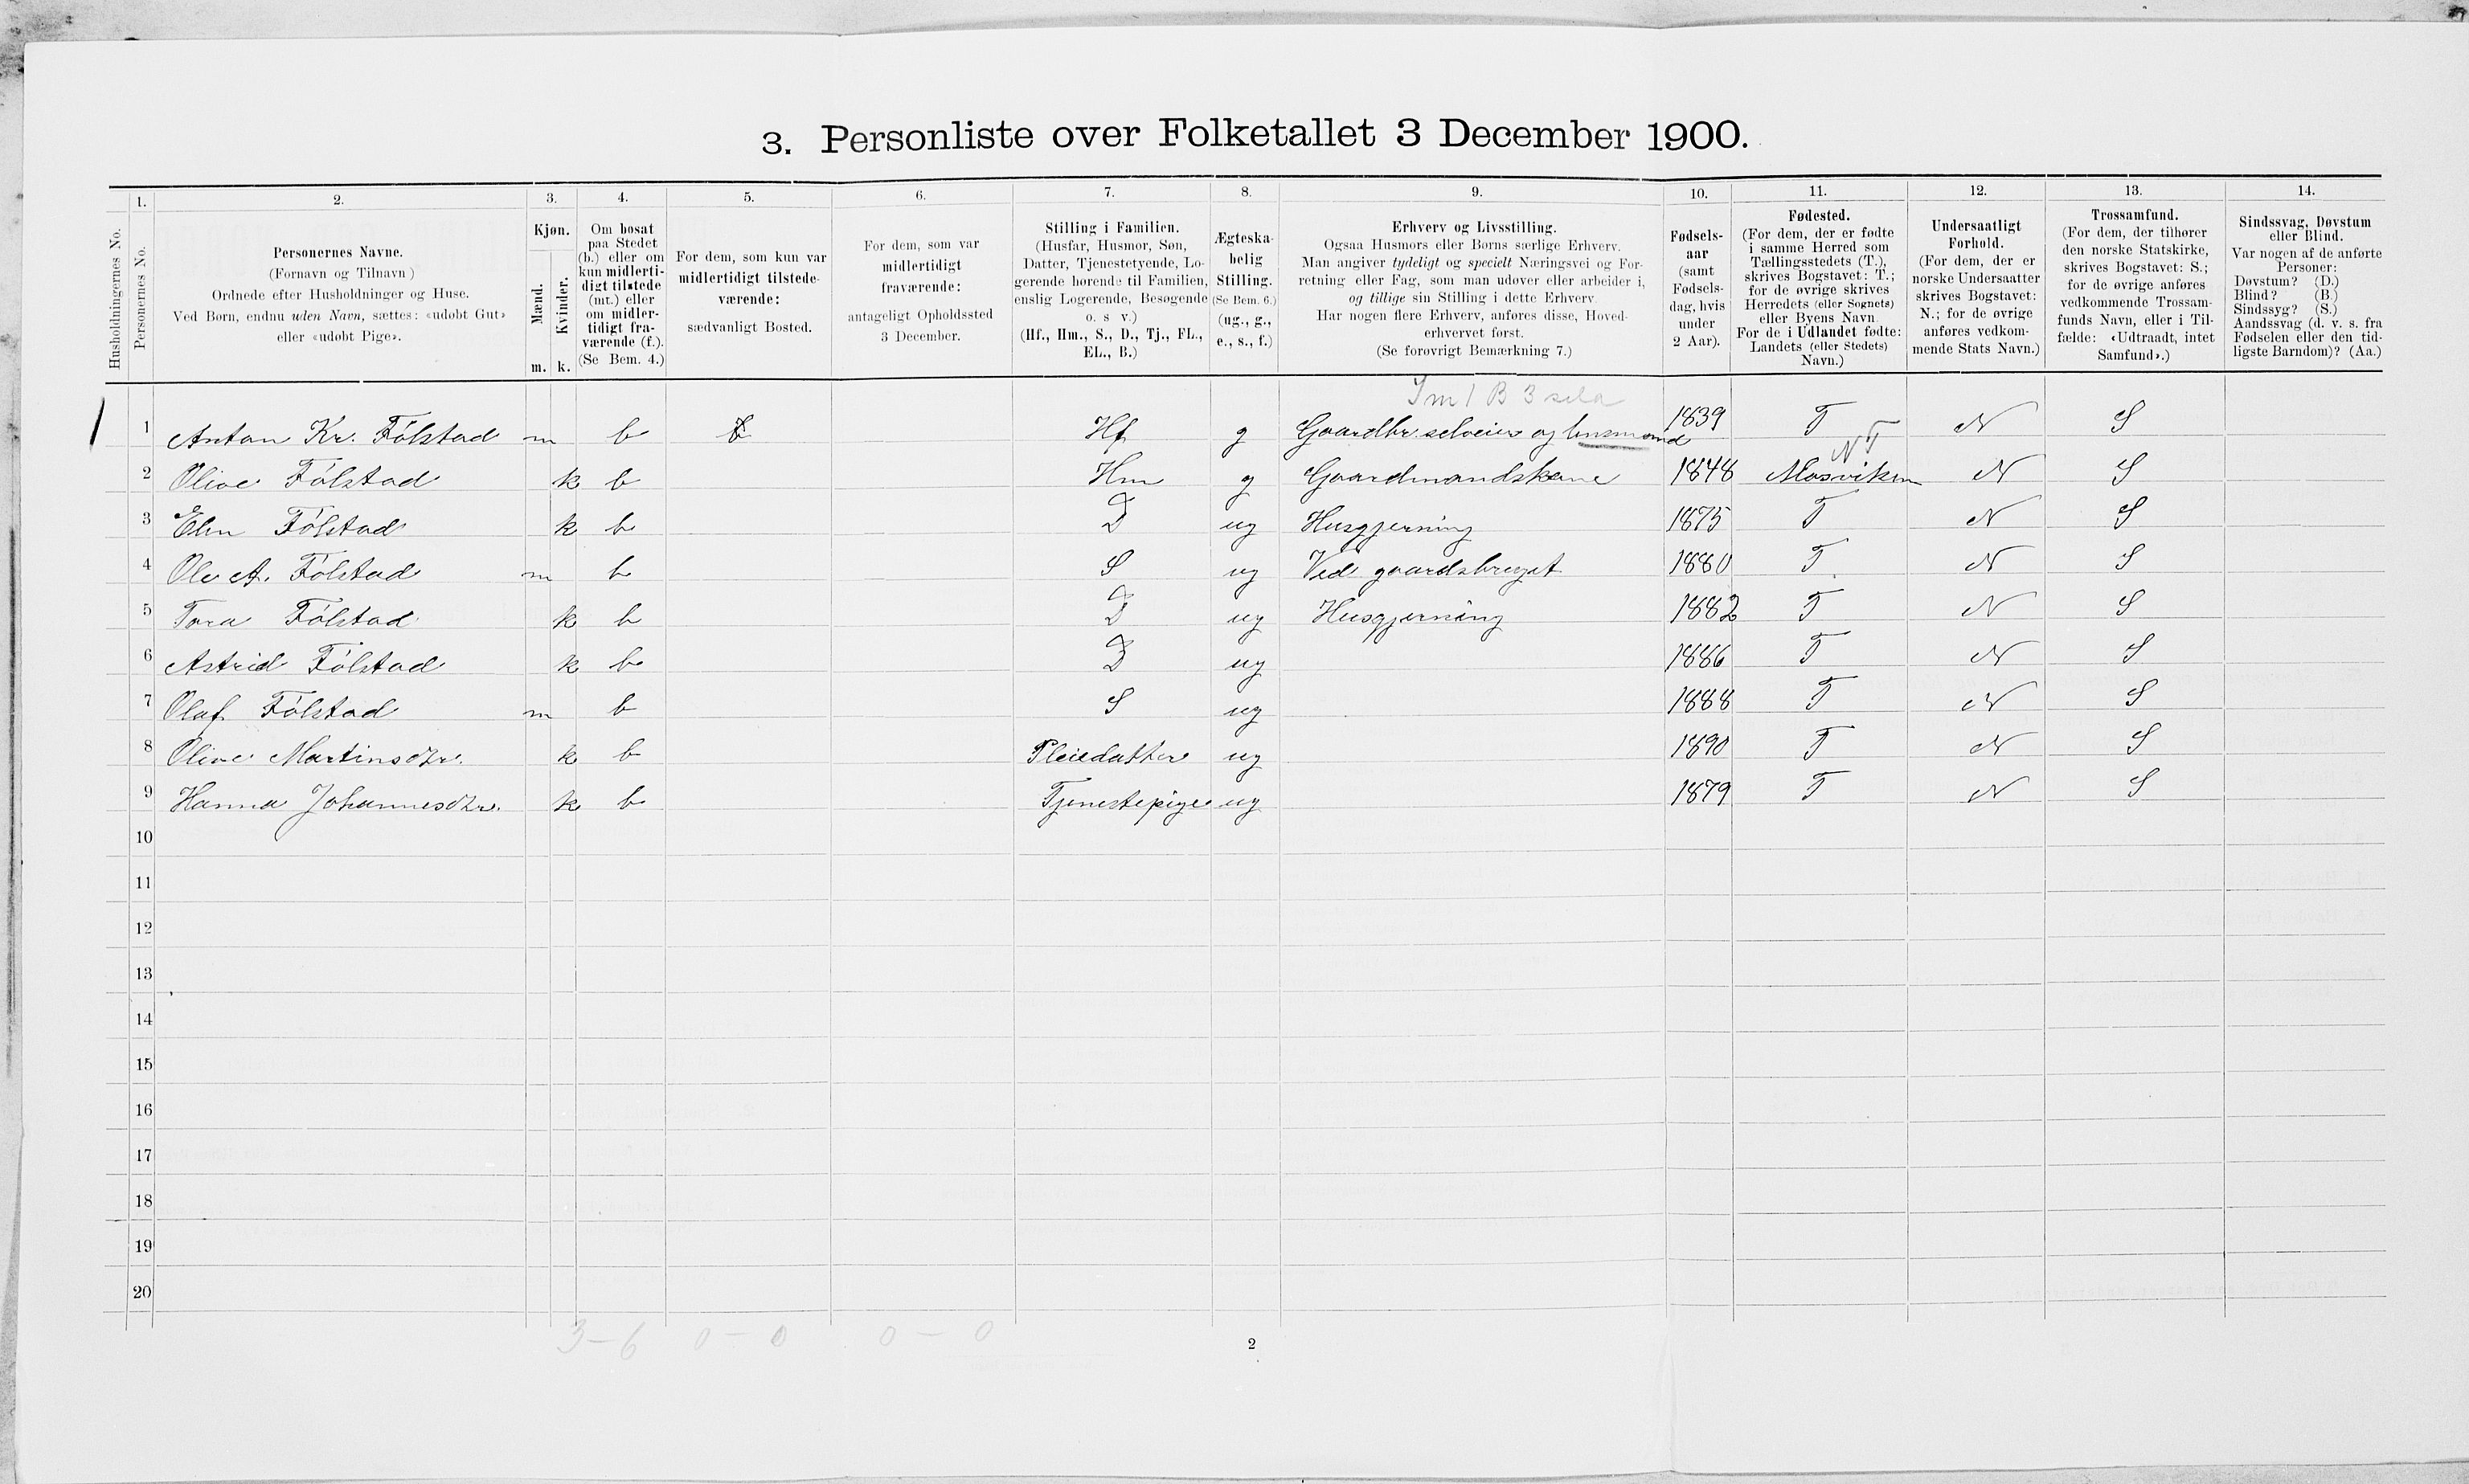 3. Personliste over Folketallet 3 December 1900.
Husholdningernes No.
1. Personernes No.
2. Personernes Navne.
(Fornavn og Tilnavn)
Ordnede efter Husholdninger og Huse.
Ved Børn, endnu uden Navn, sættes: «udøbt Gut»
eller «udøbt Pige».
3. Kjøn.
Mænd. Kvinder.
m. k.
4. Om bosat
paa Stedet
(b.) eller om
kun midlerti-
digt tilstede
(mt.) eller
om midler-
tidigt fra-
værende (f.).
(Se Bem. 4.)
5. For dem, som kun var
midlertidigt tilstede-
værende:
sædvanligt Bosted.
6. For dem, som var
midlertidigt
fraværende:
antageligt Opholdssted
3 December.
7. Stilling i Familien.
(Husfar, Husmor, Søn,
Datter, Tjenestetyende, Lo-
gerende hørende til Familien,
enslig Logerende, Besøgende
o. s v.)
(Hf., Hm., S., D., Tj., FL.,
EL., B.)
8. Ægteska-
belig
Stilling.
(Se Bem. 6.)
(ug., g.,
e., s., f.)
9. Erhverv og Livsstilling.
Ogsaa Husmors eller Børns særlige Erhverv.
Man angiver tydeligt og specielt Næringsvei og For-
retning eller Fag, som man udøver eller arbeider i,
og tillige sin Stilling i dette Erhverv.
Har nogen flere Erhverv, anføres disse, Hoved-
erhvervet først.
(Se forøvrigt Bemærkning 7.)
10. Fødsels-
aar
(samt
Fødsels-
dag, hvis
under
2 Aar).
11. Fødested.
(For dem, der er fødte
i samme Herred som
Tællingsstedets (T.),
skrives Bogstavet: T.;
for de øvrige skrives
Herredets (eller Sognets)
eller Byens Navn.
For de i Udlandet fødte:
Landets (eller Stedets)
Navn.)
12. Undersaatligt
Forhold.
(For dem, der er
norske Undersaatter
skrives Bogstavet:
N.; for de øvrige
anføres vedkom-
mende Stats Navn.)
13. Trossamfund.
(For dem, der tilhører
den norske Statskirke,
skrives Bogstavet: S.;
for de øvrige anføres
vedkommende Trossam-
funds Navn, eller i Til-
fælde: «Udtraadt, intet
Samfund».)
14. Sindssvag, Døvstum
eller Blind.
Var nogen af de anførte
Personer:
Døvstum? (D.)
Blind? (B.)
Sindssyg? (S.)
Aandssvag (d. v. s. fra
Fødselen eller den tid-
ligste Barndom)? (Aa.)
1 1 Anton Kr. Følstad m b Hf g Gaardbr. selveier og lensmand 1839 T N S
N T
2 Olive Følstad k b Hm g Gaardmandskone 1848 Mosviken N S
3 Elen Følstad k b D ug Husgjerning 1875 T N S
4 Ole A. Følstad m b S ug Ved gaardsbruget 1880 T N S
5 Tora Følstad k b D ug Husgjerning 1882 T N S
6 Astrid Følstad k b D ug 1886 T N S
7 Olaf Følstad m b S ug 1888 T N S
8 Olive Martinsdtr. k b Pleiedatter ug 1890 T N S
9 Hanna Johannesdtr. k b Tjenestepige ug 1879 T N S
10
11
12
13
14
15
16
17
18
19
20
3 - 6 0 - 0 0 - 0
2